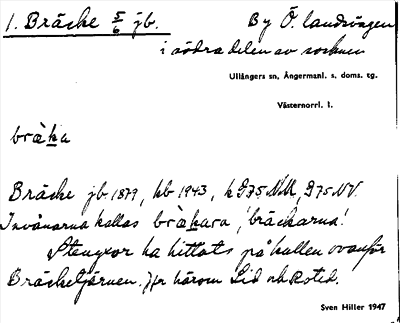 1. Bräcke 5/6 jb. By Ö. landsvägen
i södra delen av socknen
Ullångers sn, Ångermanl. s. doms. tg.
Västernorrl. l.
bræ̀ka
Bräcke jb 1879, kb 1943, k G75 NV.
Invånarna kallas bræ̀kara, 'bräckarna'.
Stenyxor ha hittats på kullen ovanför
Bräcketjärnen. Jfr härom Lid och Roted.
Sven Hiller 1947